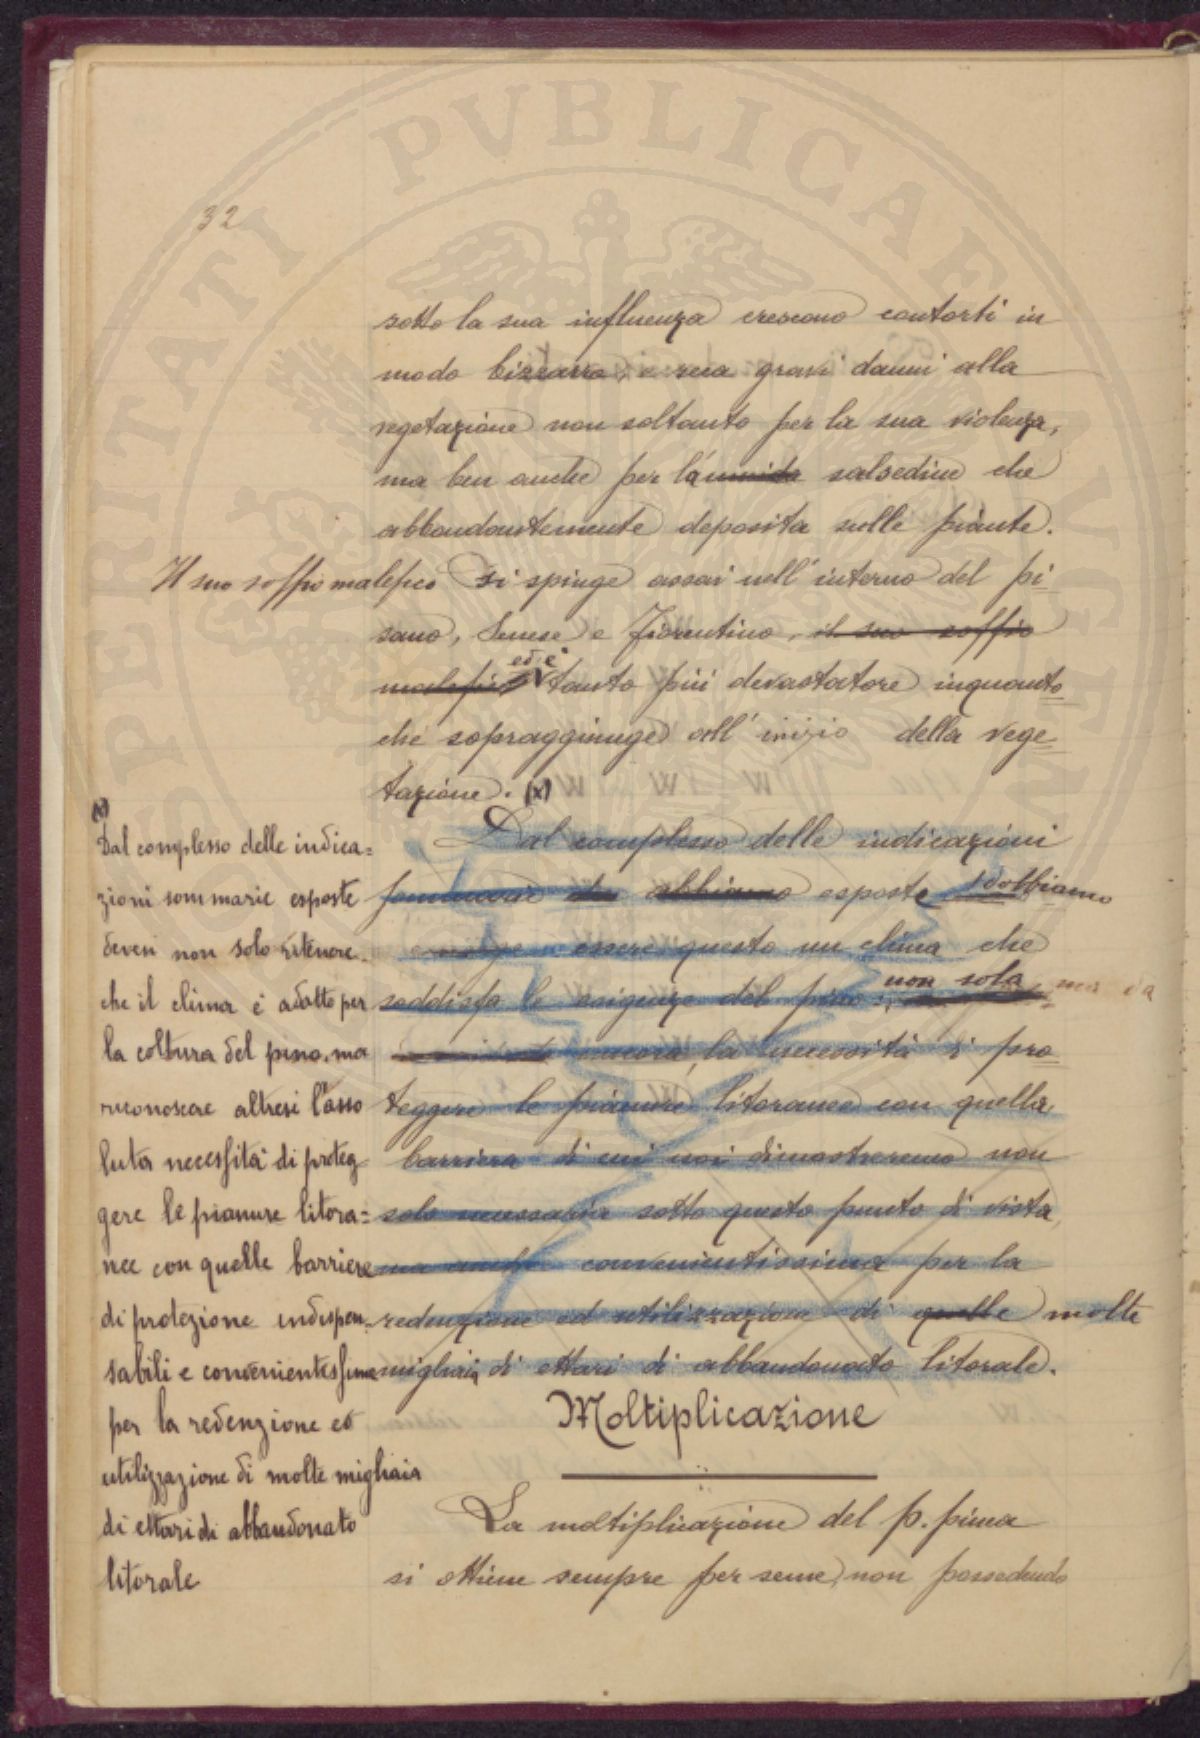 32
sotto la sua influenza crescono contorti in
modo bizzarro, e reca gravi danni alla
vegetazione non soltanto per la sua violenza,
ma ben anche per la umida salsedine che
abbondantemente deposita sulle piante.
Il suo soffio malefico si spinge assai nell'interno del pi-
sano, Senese e Fiorentino, il suo soffio
malefico ed è tanto più devastatore inquanto
che sopraggiunge coll'inizio della vege-
tazione. (x)
(x)
Dal complesso delle indica=
zioni sommarie esposte
devesi non solo ritenere
che il clima è adatto per
la coltura del pino, ma
riconoscere altresì l'asso
luta necessità di proteg-
gere le pianure litora=
nee con quelle barriere
di protezione indispen-
sabili e convenientissime
per la redenzione ed
utilizzazione di molte migliaia
di ettari di abbandonato
litorale
Dal complesso delle indicazioni
sommarie che abbiamo esposte dobbiamo
emerge essere questo un clima che
soddisfa le esigenze del pino; non sola ma
ancora, la necessità di pro-
teggere le pianure litoranee con quella
barriera di cui noi dimostreremo non
solo necessaria sotto questo punto di vista,
ma anche convenientissima per la
redenzione ed utilizzazione di quelle molte
migliaia di ettari di abbandonato litorale.
Moltiplicazione
La moltiplicazione del p. pinea
si ottiene sempre per seme, non possedendo
PERITATI PVBLICAE